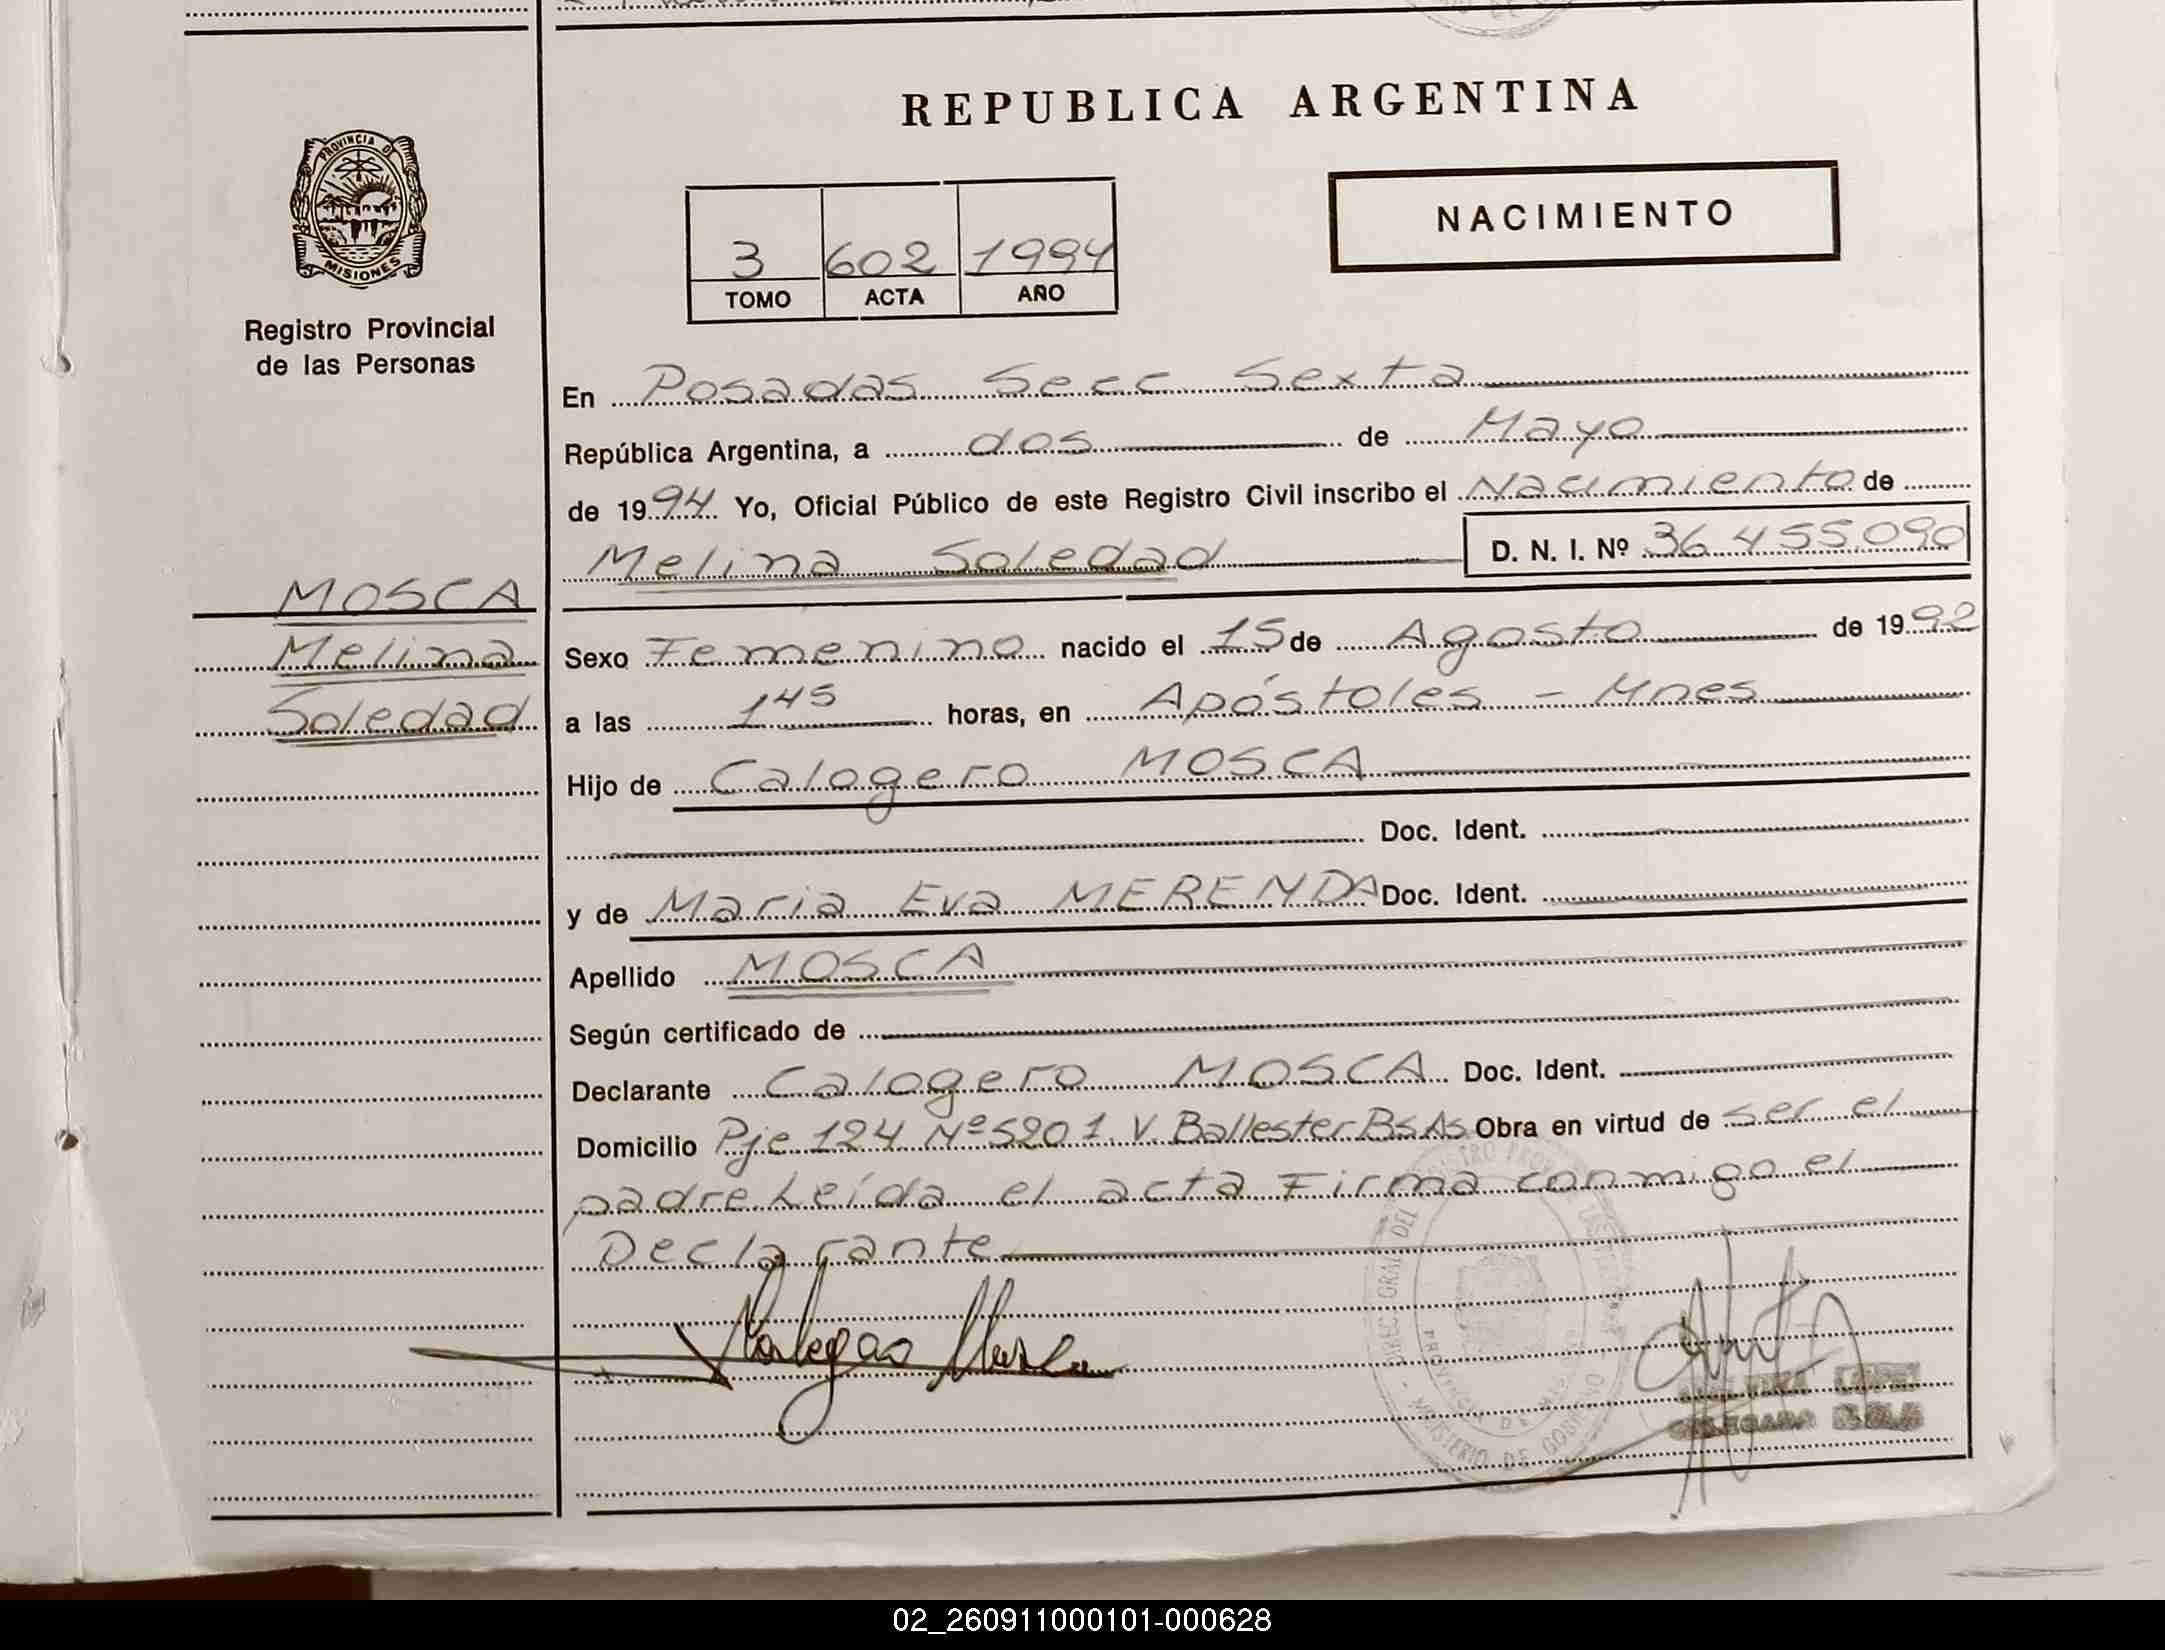 REPUBLICA ARGENTINA
PROVINCIA DE
MISIONES
Registro Provincial
de las Personas
NACIMIENTO
3 602 1994
TOMO ACTA AÑO
En Posadas Secc Sexta
República Argentina, a dos de Mayo
de 1994 Yo, Oficial Público de este Registro Civil inscribo el Nacimiento de
Melina Soledad D. N. I. Nº 36.455.090
MOSCA
Melina
Soledad
Sexo Femenino nacido el 15 de Agosto de 1992
a las 1 45 horas, en Apóstoles - Mnes
Hijo de Calogero MOSCA
Doc. Ident.
y de Maria Eva MERENDA Doc. Ident.
Apellido MOSCA
Según certificado de
Declarante Calogero MOSCA Doc. Ident.
Domicilio Pje 124 Nº 5201 V. Ballester Bs As Obra en virtud de ser el
padre. Leída el acta Firma conmigo el
Declarante
MINISTERIO DE GOBIERNO
02_260911000101-000628